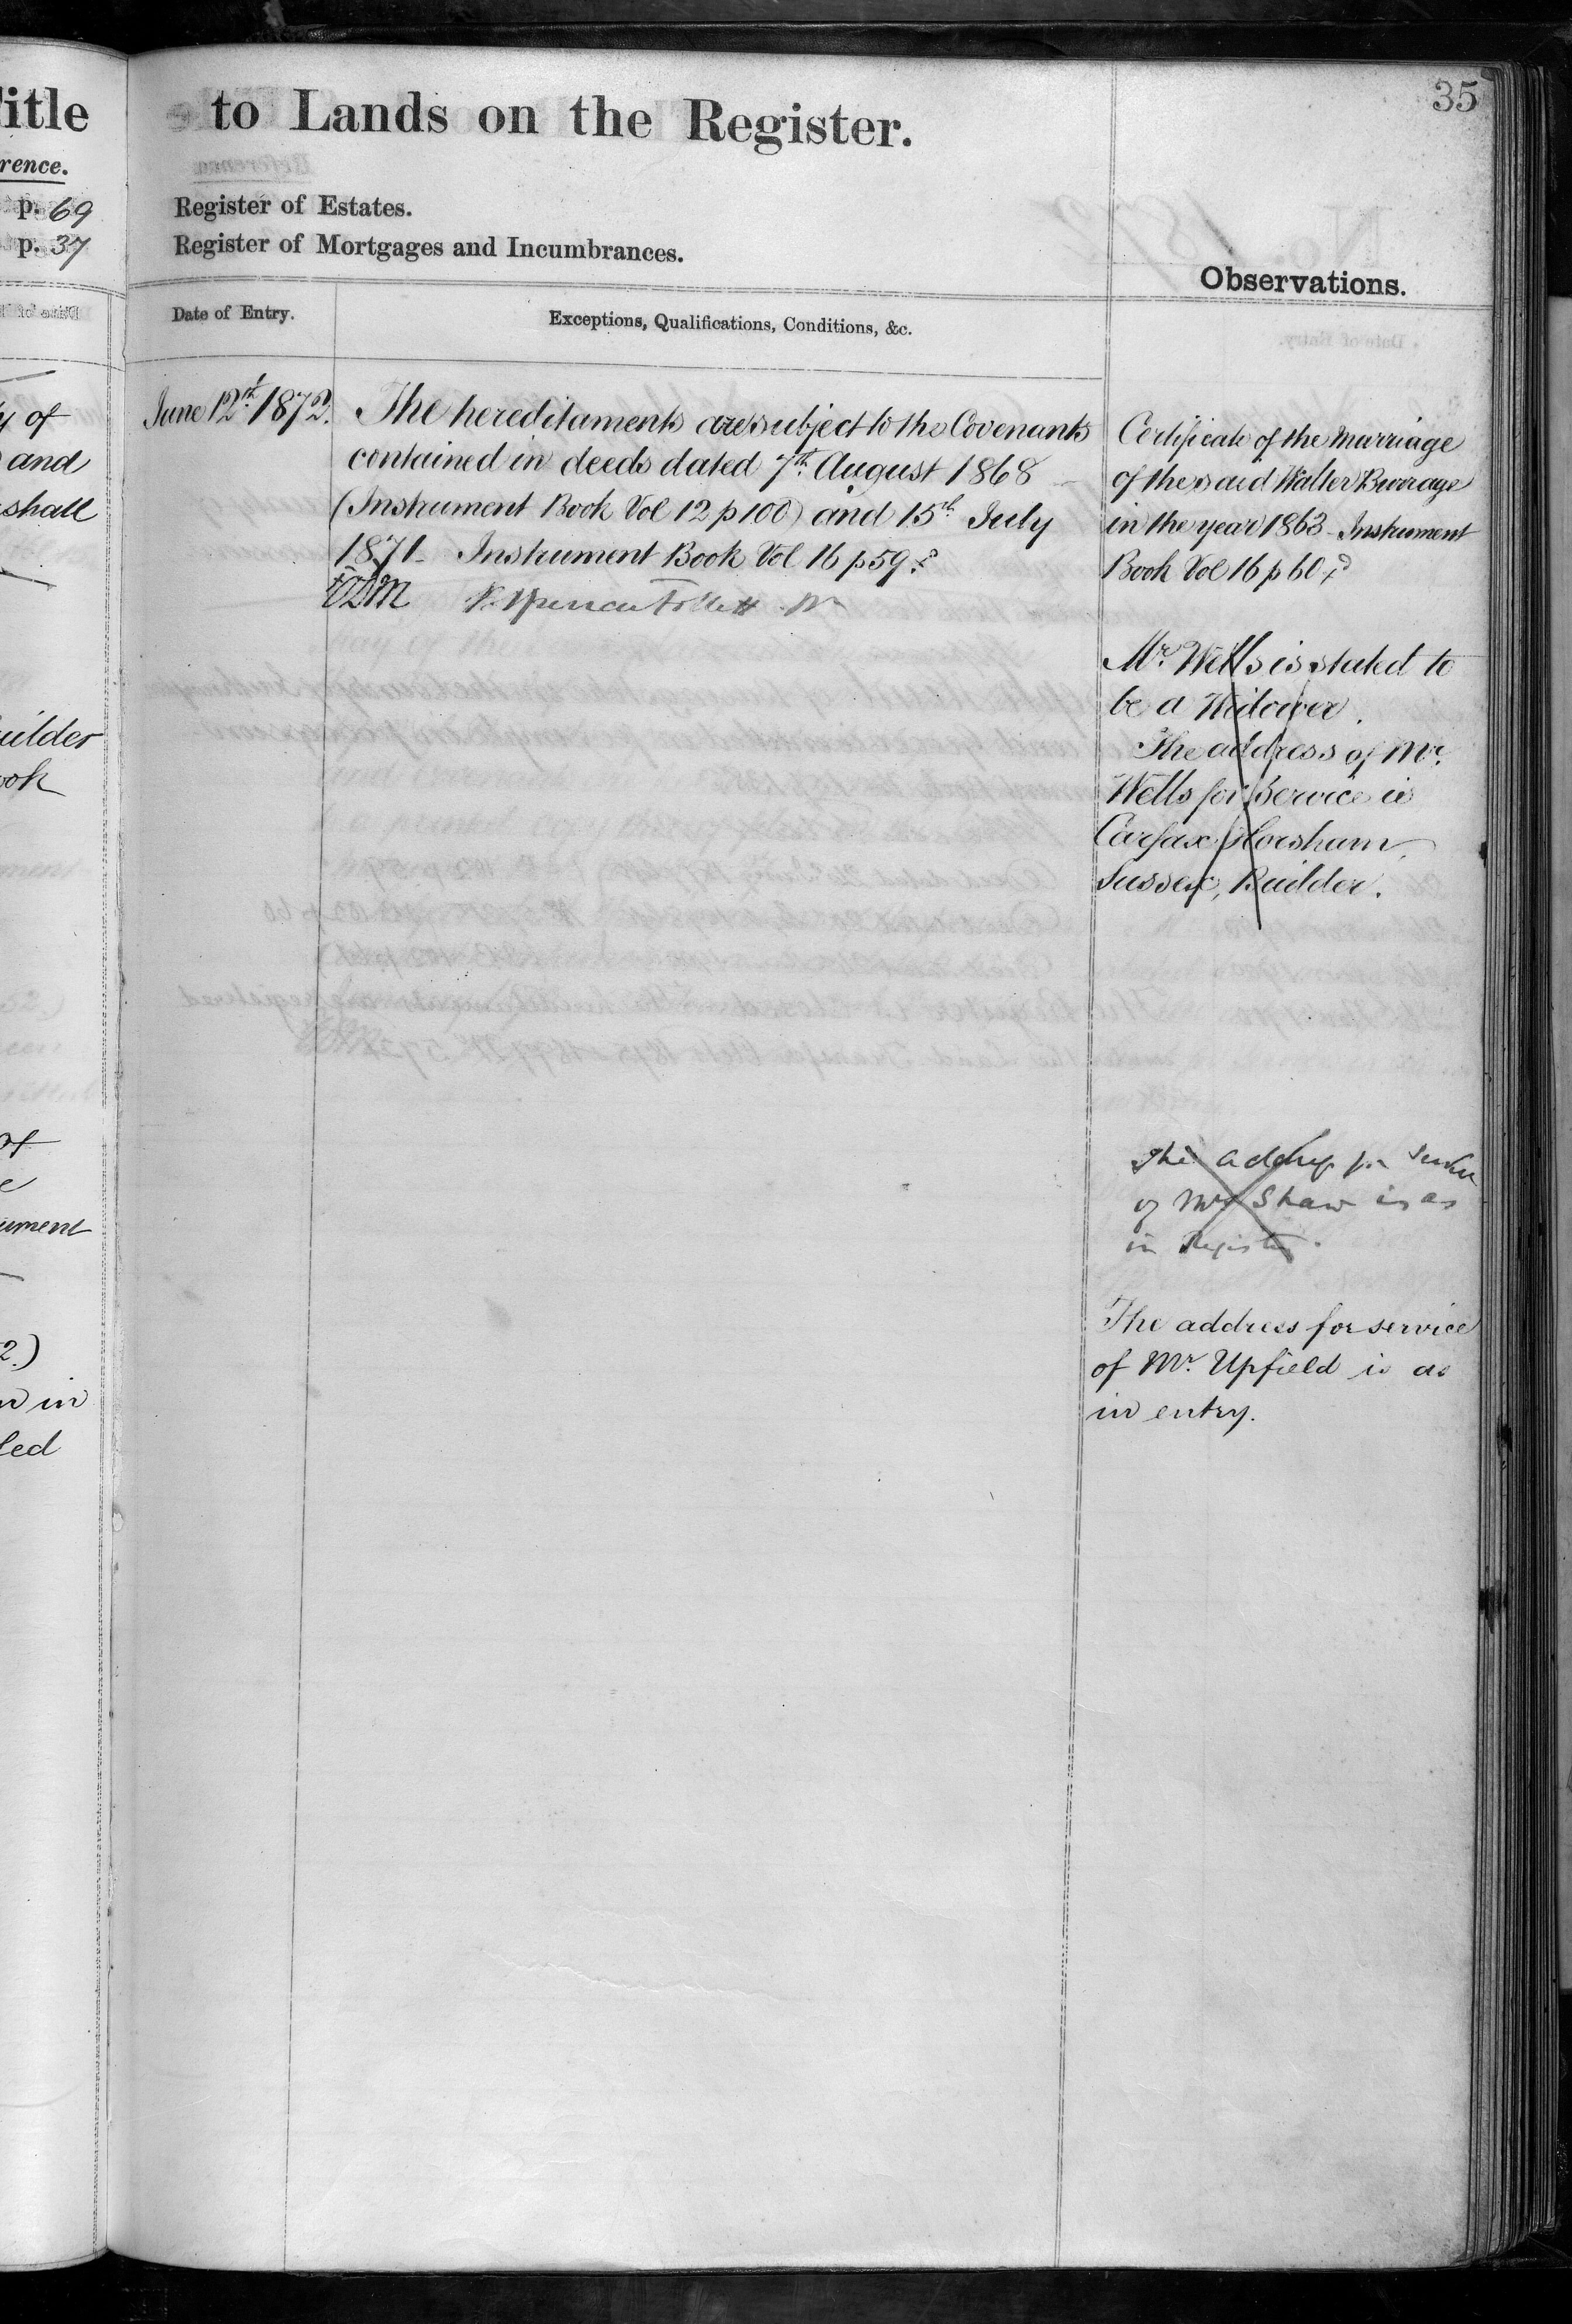 35
itle
to Lands on the Register.
rence.
p. 69
Register of Estates.
p. 37
Register of Mortgages and Incumbrances.
Observations.
Date of Entry.
Exceptions, Qualifications, Conditions, &c.
June 12th 1872.
The hereditaments are subject to the Covenants
contained in deeds dated 7th August 1868
(Instrument Book Vol 12 p 100) and 15th July
1871 Instrument Book Vol 16 p 59.
Certificate of the Marriage
of the said Walter Burrage
in the year 1863 - Instrument
Book Vol 16 p 60
Mr. Wells is stated to
be a Widower.
The address of Mr.
Wells for Service is
Carfax Horsham,
Sussex, Builder.
The address for service
of Mr Shaw is as
in Register.
The address for service
of Mr. Upfield is as
in entry.
y of
and
shall
uilder
ook
of
e
ument
2.)
n in
led